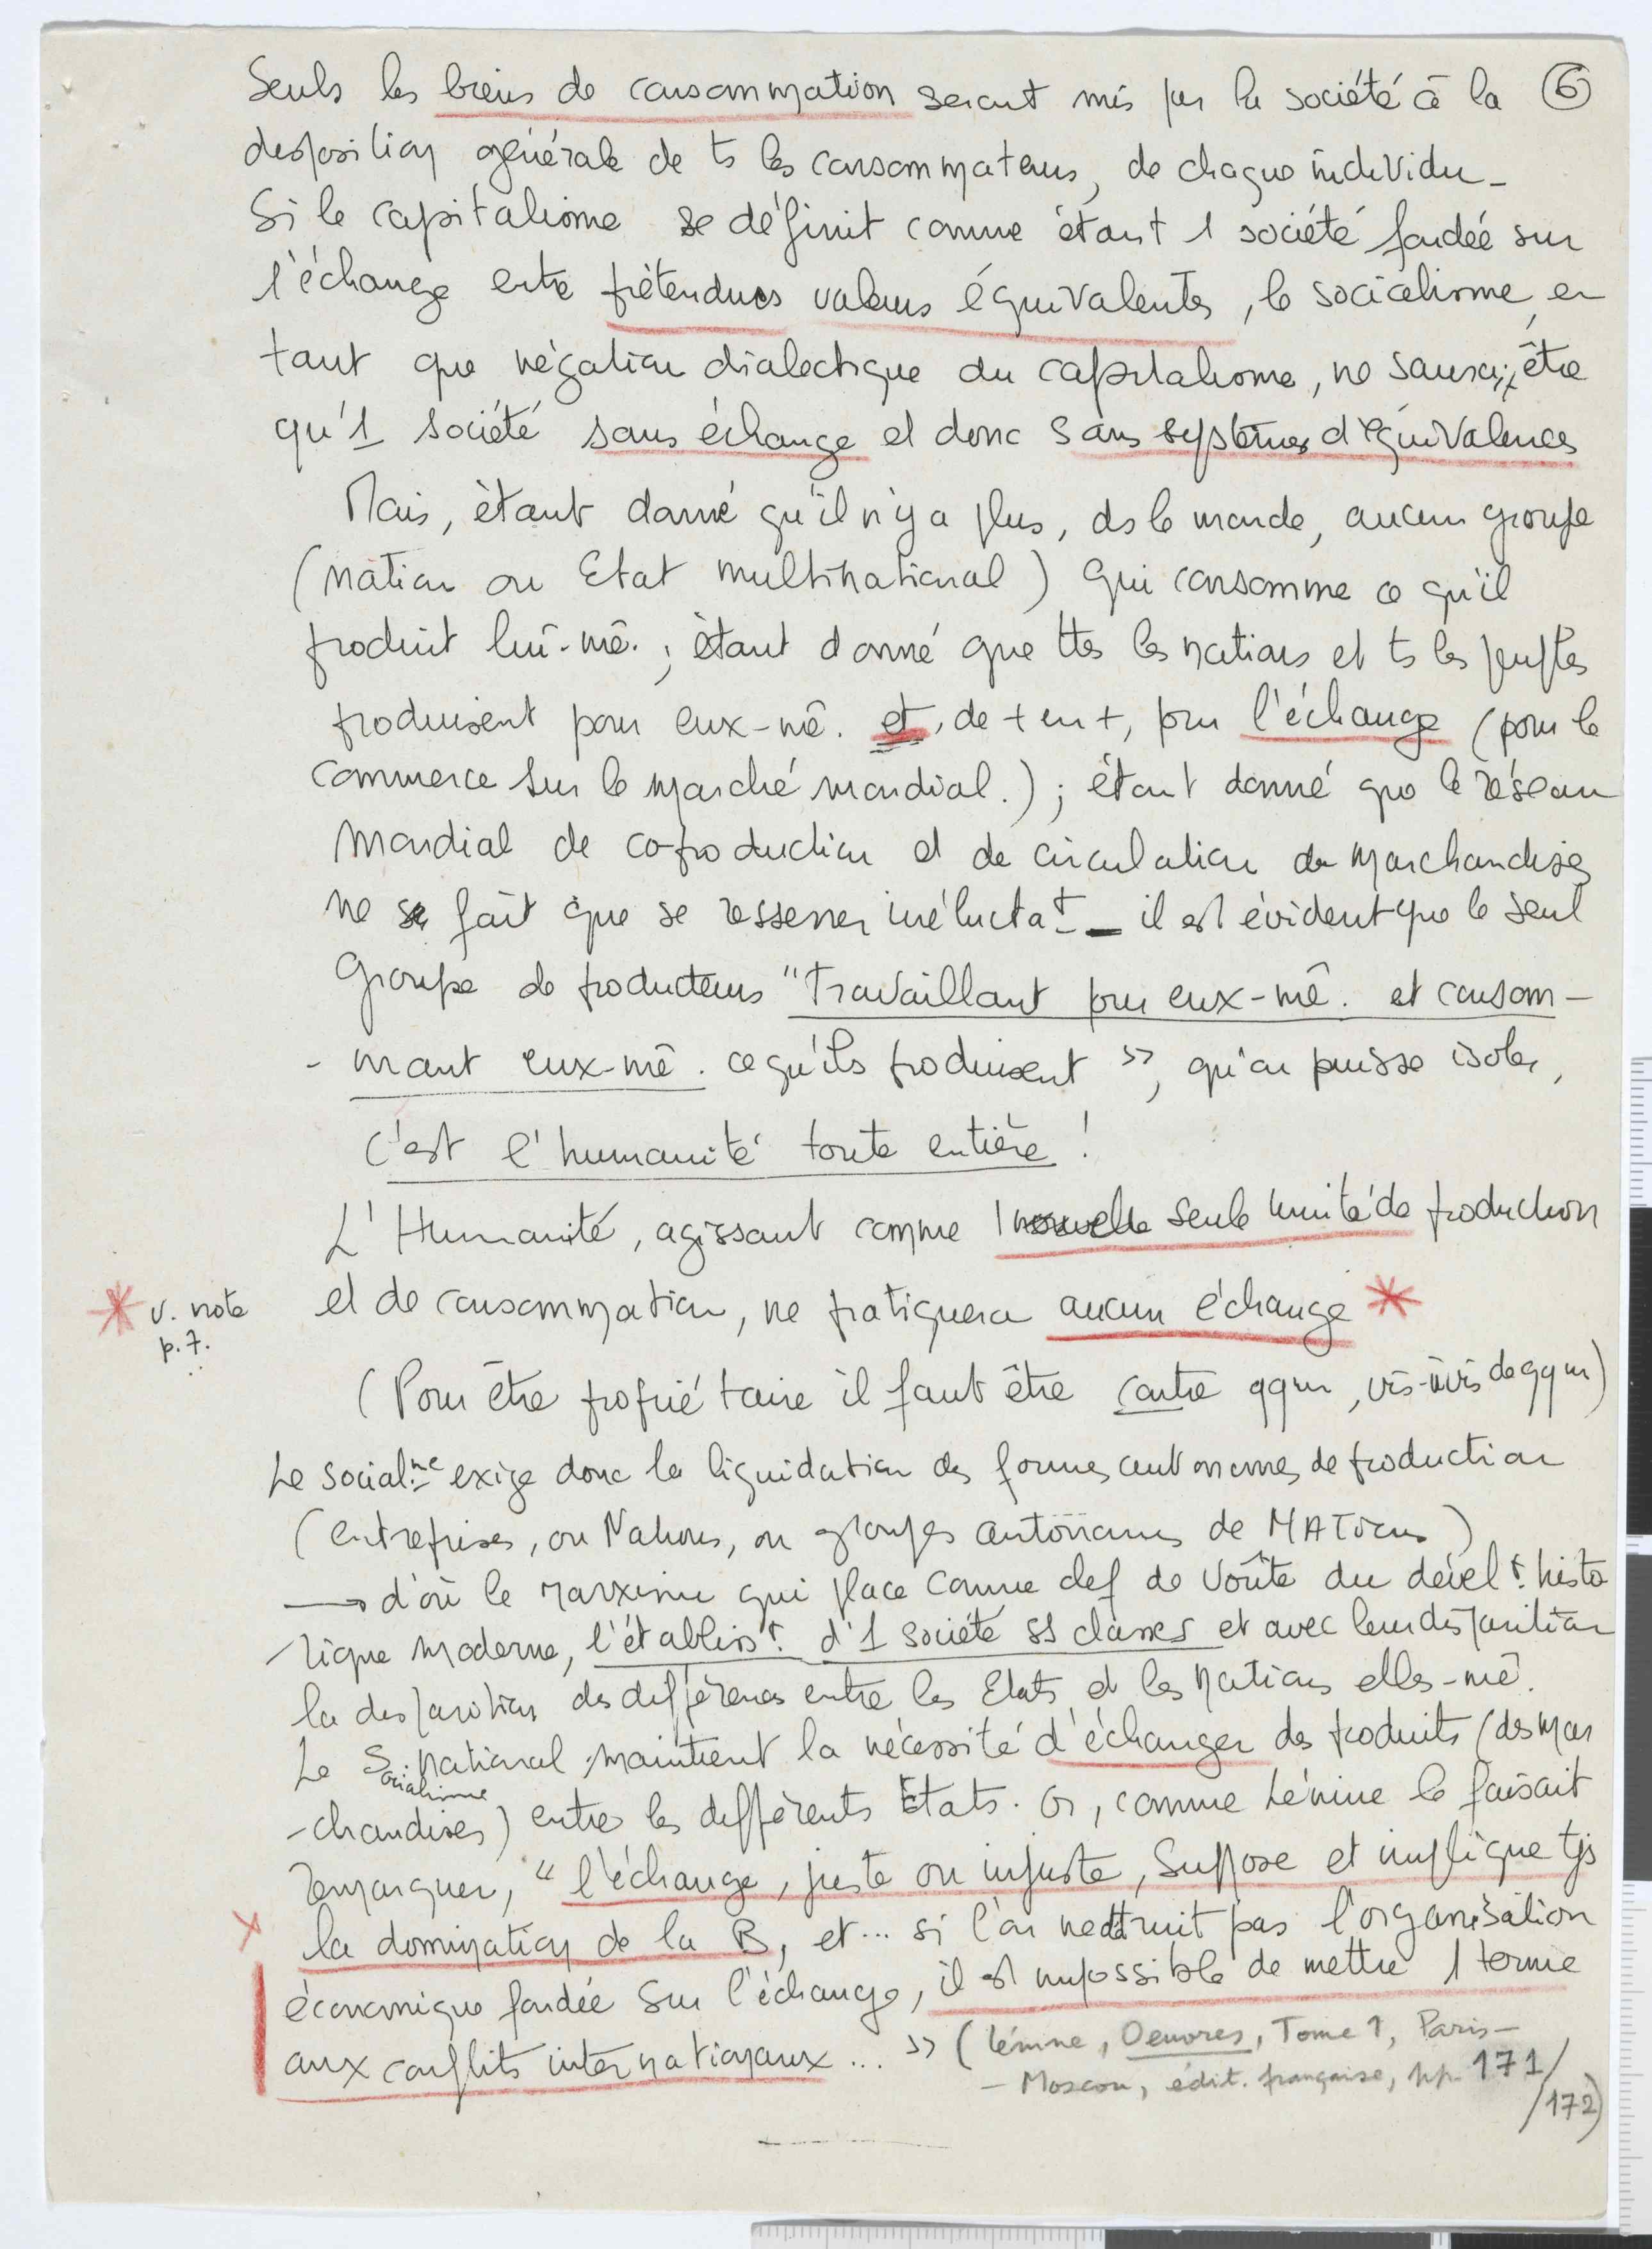 Seuls les biens de consommation seront mis par la société à la ⑥
disposition générale de ts les consommateurs, de chaque individu -
Si le capitalisme se définit comme étant 1 société fondée sur
l'échange entre prétendues valeurs équivalentes, le socialisme, en
tant que négation dialectique du capitalisme, ne saurait être
qu'1 société sans échange et donc sans systèmes d'équivalences
Mais, étant donné qu'il n'y a plus, ds le monde, aucun groupe
(nation ou Etat multinational) qui consomme ce qu'il
produit lui-mê. ; étant donné que ttes les nations et ts les peuples
produisent pour eux-mê. et, de + en +, pour l'échange (pour le
commerce sur le marché mondial.) ; étant donné que le réseau
mondial de co-production et de circulation de marchandises
ne fait que se resserrer inélucta^t — il est évident que le seul
groupe de producteurs "travaillant pour eux-mê. et consom-
-mant eux-mê. ce qu'ils produisent", qu'on puisse isoler,
c'est l'humanité toute entière !
L'Humanité, agissant comme 1 nouvelle seule unité de production
et de consommation, ne pratiquera aucun échange *
* v. note
p. 7.
(Pour être propriétaire il faut être contre qqun, vis-à-vis de qqun)
Le social^me exige donc la liquidation des formes autonomes de production
(entreprises, ou Nations, ou groupes autonomes de NATions)
→ d'où le marxisme qui place comme clef de voûte du dével^t. histo
-rique moderne, l'établiss^t. d'1 société ss classes et avec leur disparition
la disparition des différences entre les Etats et les nations elles-mê.
Le Socialisme national maintient la nécessité d'échanger des produits (des mar
-chandises) entre les différents Etats. Or, comme Lénine le faisait
remarquer, "l'échange, juste ou injuste, suppose et implique tjs
la domination de la B, et... si l'on ne détruit pas l'organisation
économique fondée sur l'échange, il est impossible de mettre 1 terme
aux conflits internationaux..." (Lénine, Oeuvres, Tome 1, Paris -
- Moscou, édit. française, pp. 171/
/172)